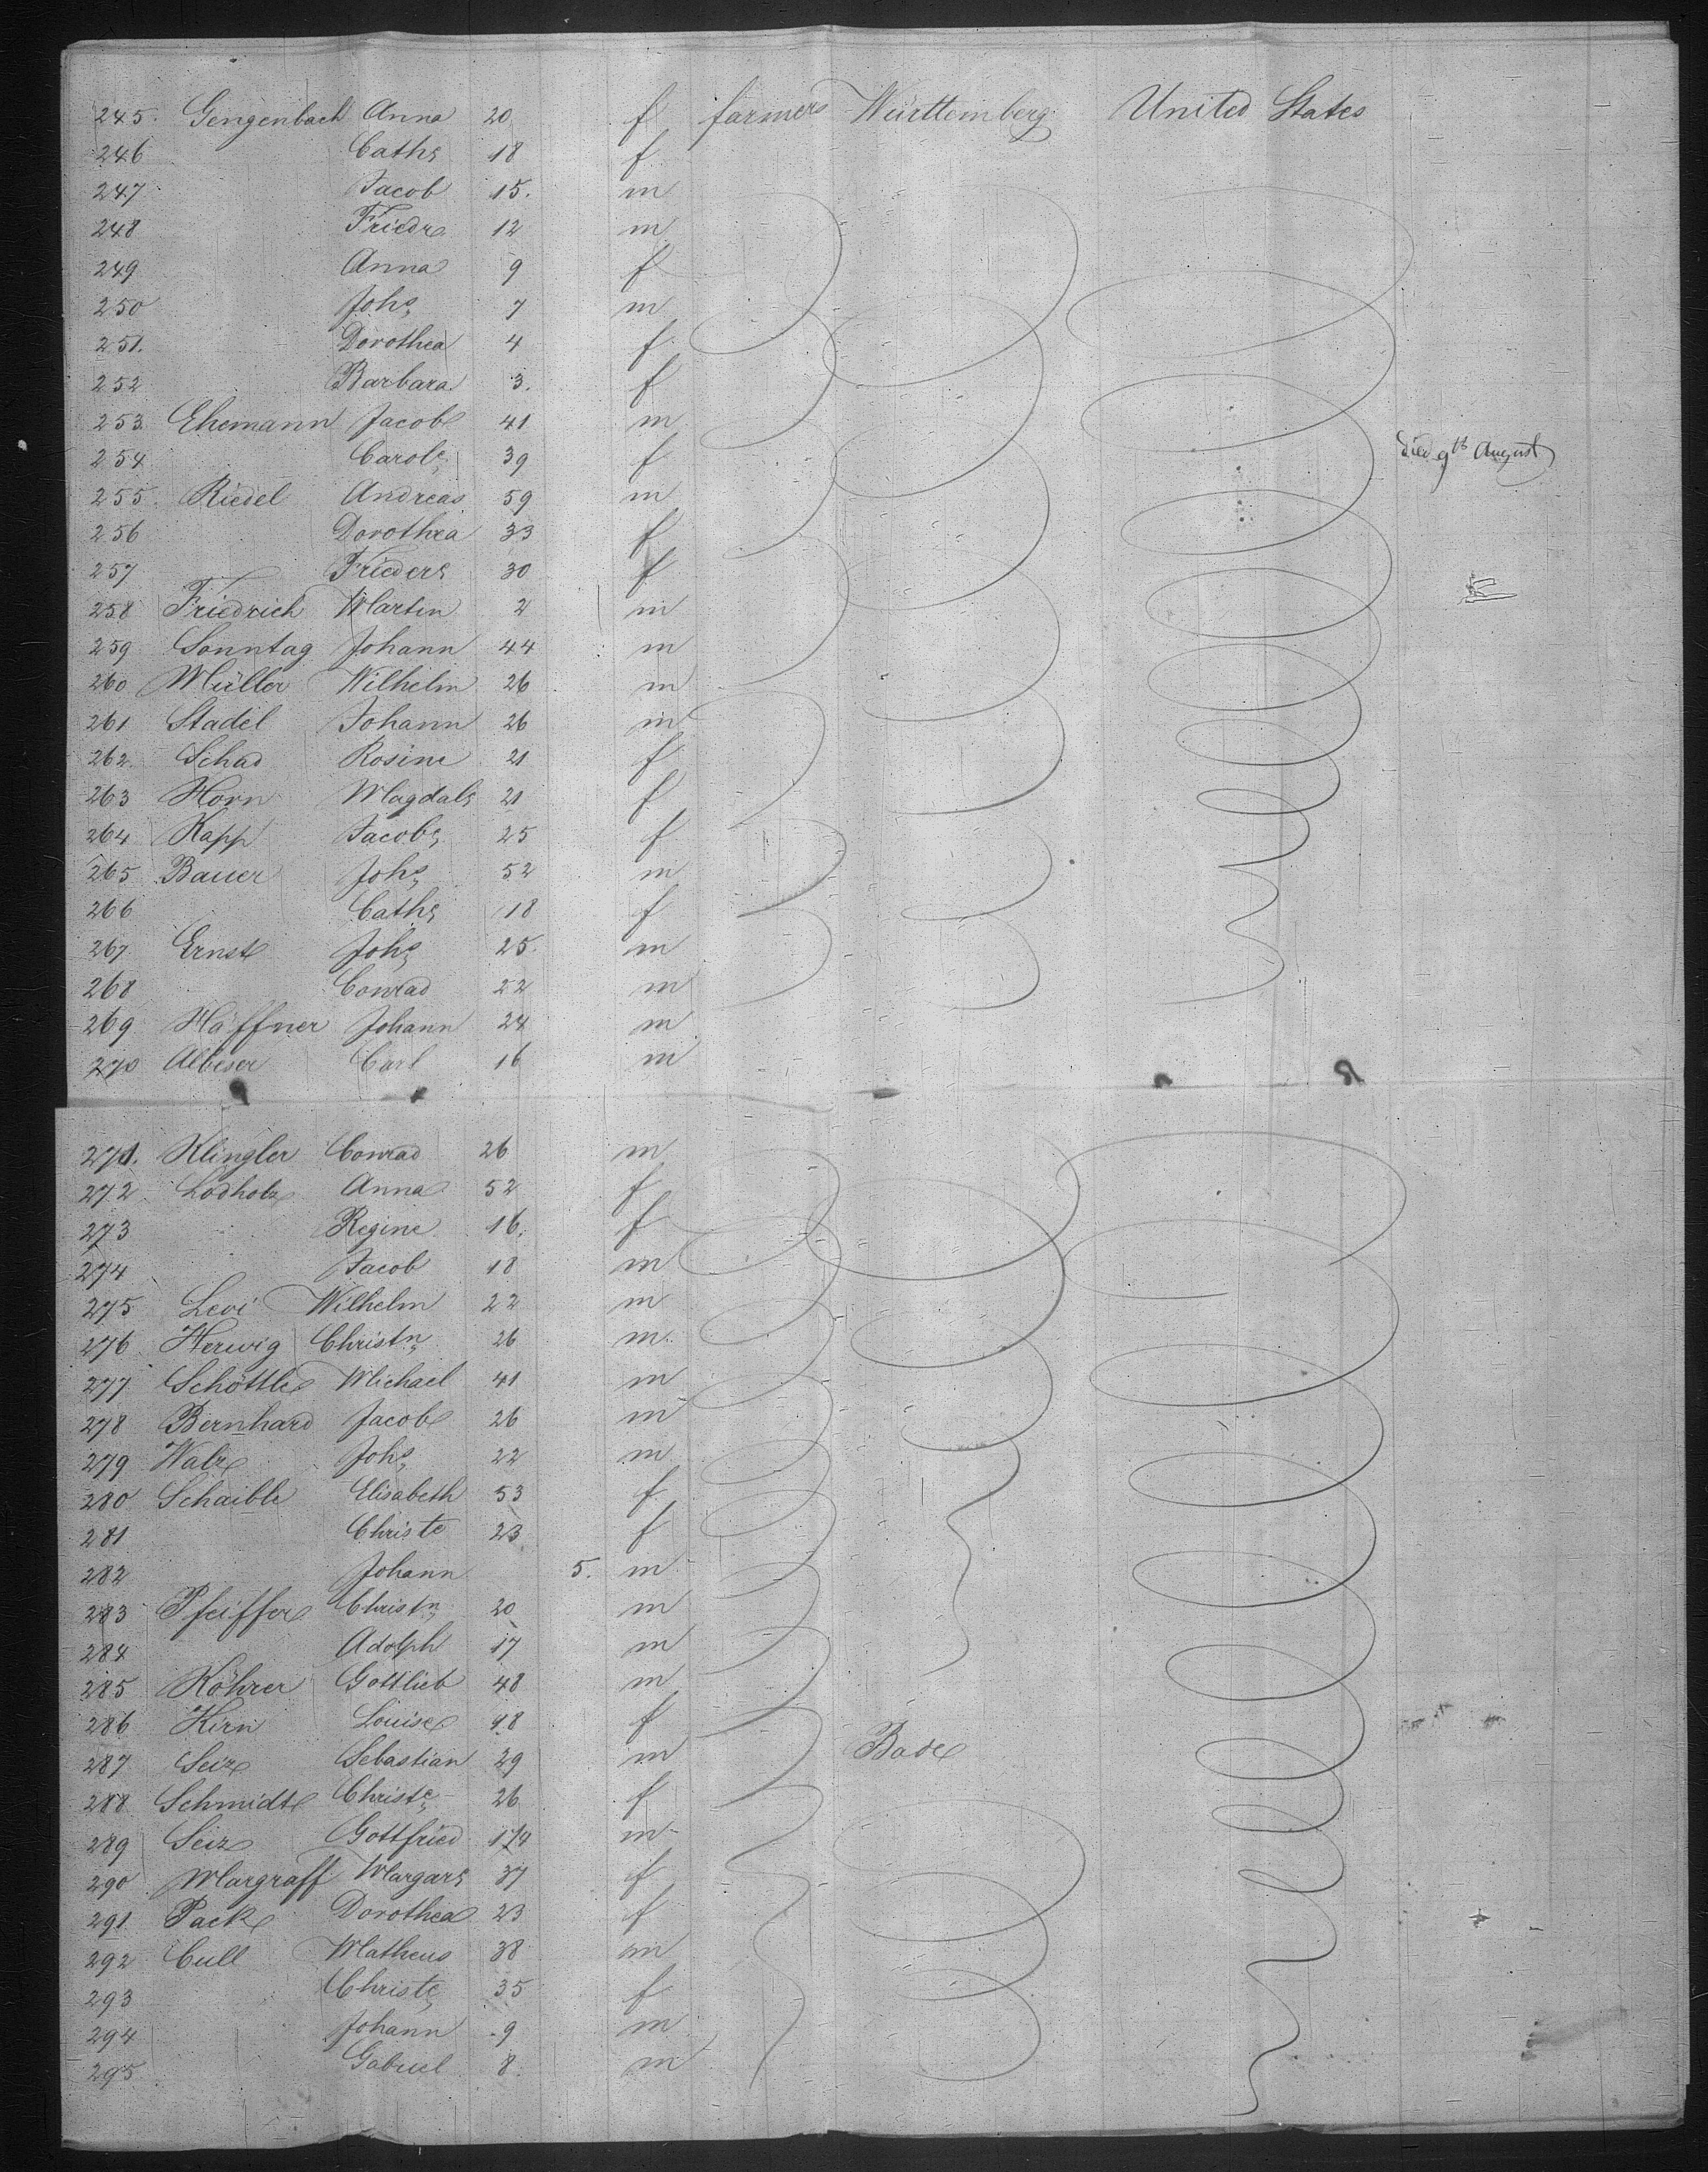 245. Gengenbach Anna 20 f farmers Württemberg United States
246 Caths 18 f
247 Jacob 15. m
248 Friedr 12 m
249 Anna 9 f
250 Johs 7 m
251. Dorothea 4 f
252 Barbara 3. f
253. Ehemann Jacob 41 m
254 Carole 39 f died 9th August
255. Riedel Andreas 59 m
256 Dorothea 33 f
257 Frieders 30 f
258 Friedrich Martin 2 m
259 Sonntag Johann 44 m
260 Müller Wilhelm 26 m
261 Stadel Johann 26 m
262. Schad Rosine 21 f
263 Horn Magdals 21 f
264 Kapp Jacobs 25 f
265 Bauer Johs 52 m
266 Caths 18 f
267 Ernst Johs 25. m
268 Conrad 22 m
269 Häffner Johann 24 m
270 Albeser Carl 16 m
271. Klingler Conrad 26 m
272 Lodholz Anna 52 f
273 Regine 16. f
274 Jacob 18 m
275 Levi Wilhelm 22 m
276 Herwig Christn 26 m
277 Schöttle Michael 41 m
278 Bernhard Jacob 26 m
279 Walz Johs 22 m
280 Schaible Elisabeth 53 f
281 Christe 23 f
282 Johann 5. m
283 Pfeiffer Christn 20 m
284 Adolph 17 m
285 Köhrer Gottlieb 48 m
286 Kirn Louise 48 f
287 Seiz Sebastian 29 m Bade
288 Schmidt Christe 26 f
289 Seiz Gottfried m
290 Margraff Margars 37 f
291. Pack Dorothea 23 f
292 Cull Matheus 38 m
293 Christe 35 f
294 Johann 9 m
295 Gabriel 8. m